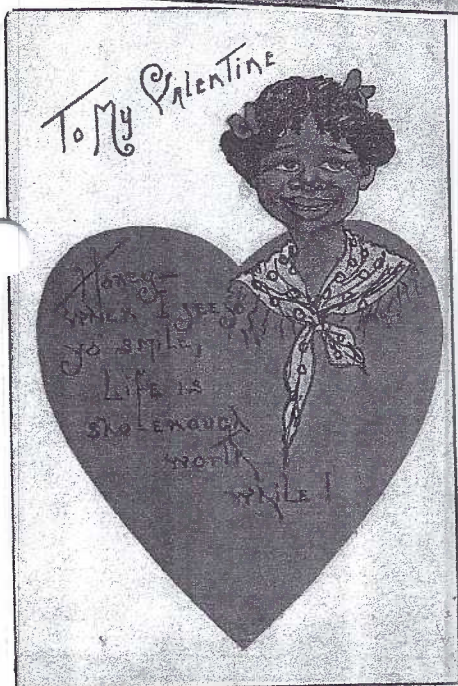 To My Valentine
Honey—
when I see
yo smile,
Life is
sho-enough
worth
while!